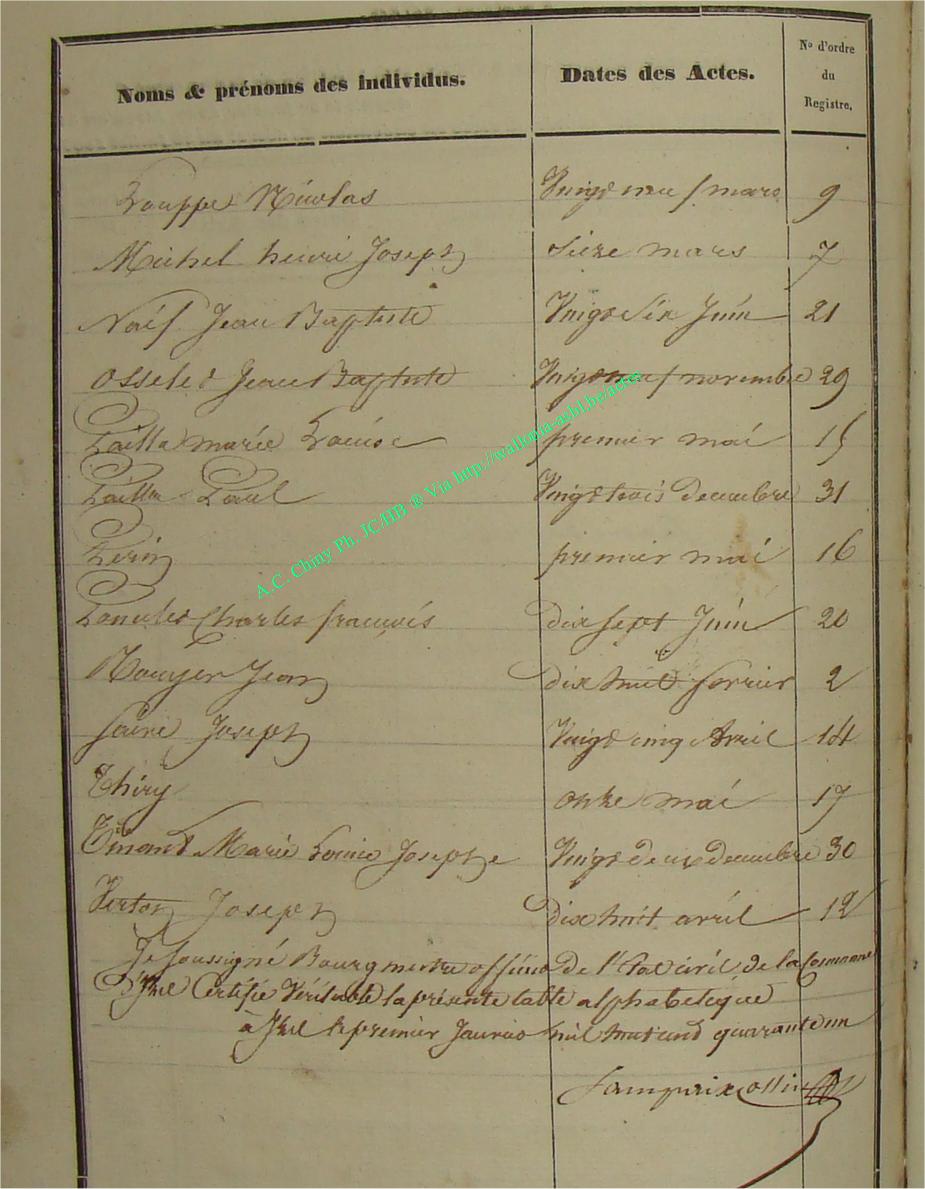 Noms & prénoms des individus. Dates des Actes. No d'ordre
du
Registre.
Louppe Nicolas Vingt neuf mars 9
Michel henri Joseph seize mars 7
Naif Jean Baptiste Vingt Six Juin 21
Osselet Jean Baptiste Vingt neuf novembre 29
marie Louise premier mai 15
Paul Vingt trois decembre 31
premier mai 16
Charles francois dix sept Juin 20
Jean dix huit fevrier 2
Joseph Vingt cinq Avril 14
Thiry onze mai 17
Marie Louise Josephe Vingt deux decembre 30
Joseph dix huit avril 12
Je soussigné Bourgmestre officier de l'état civil de la Commune
D'Izel Certifie Véritable la présente table alphabetique
à Izel le premier Janvier mil huit cent quarante un
A.C. Chiny Ph. JC/HB ® Via http://wallonia-asbl.be/actes